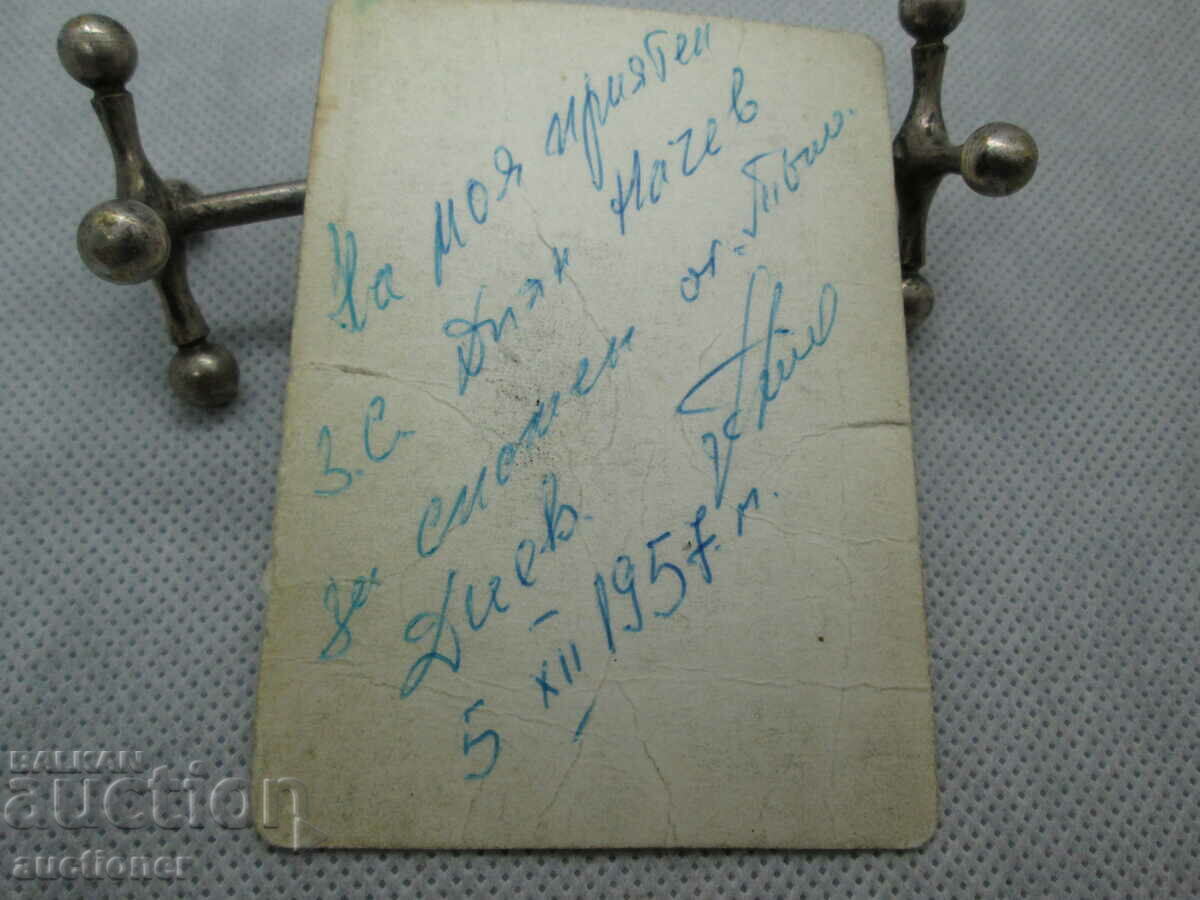 На моя приятел
З.С. Диян Начев
за спомен от
Диев.
5 XII 1957 г.
BALKAN
auction
auctioner